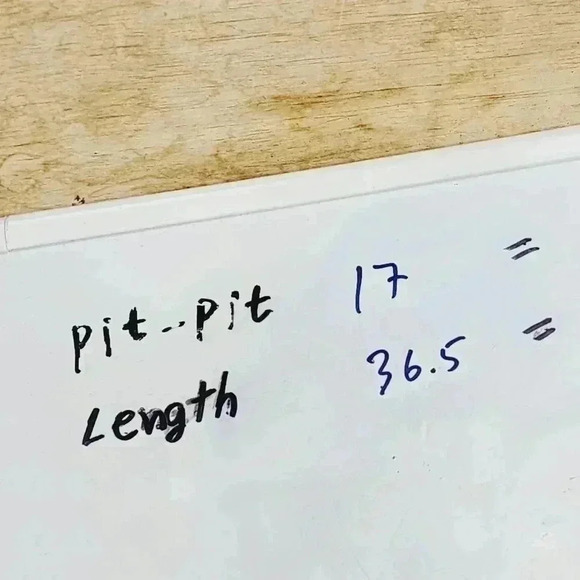 pit--pit 17 =
Length 36.5 =